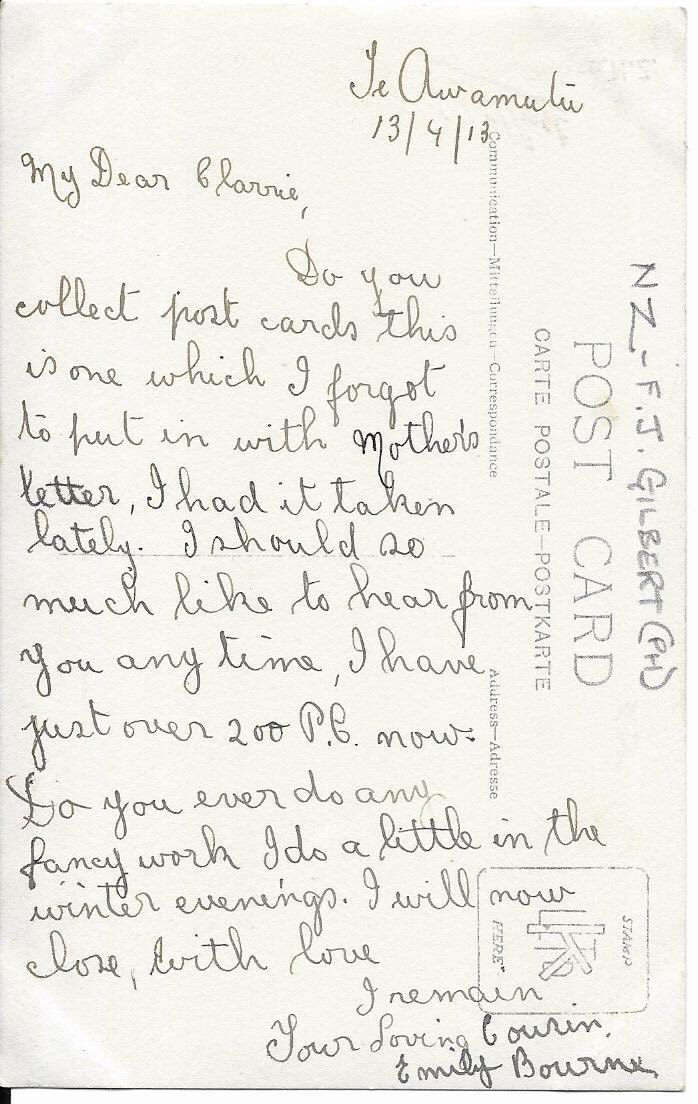 Te Awamutu
13/4/13
My Dear Clarrie,
Do you
collect post cards this
is one which I forgot
to put in with Mother's
letter, I had it taken
lately. I should so
much like to hear from
you any time, I have
just over 200 P.C. now.
Do you ever do any
fancy work I do a little in the
winter evenings. I will now
close, with love
I remain
Your Loving Cousin.
Emily Bourne.
Communication—Mitteilungen—Correspondance
Address—Adresse
CARTE POSTALE—POSTKARTE
POST CARD
NZ - F.J. GILBERT (PH)
STAMP
HERE